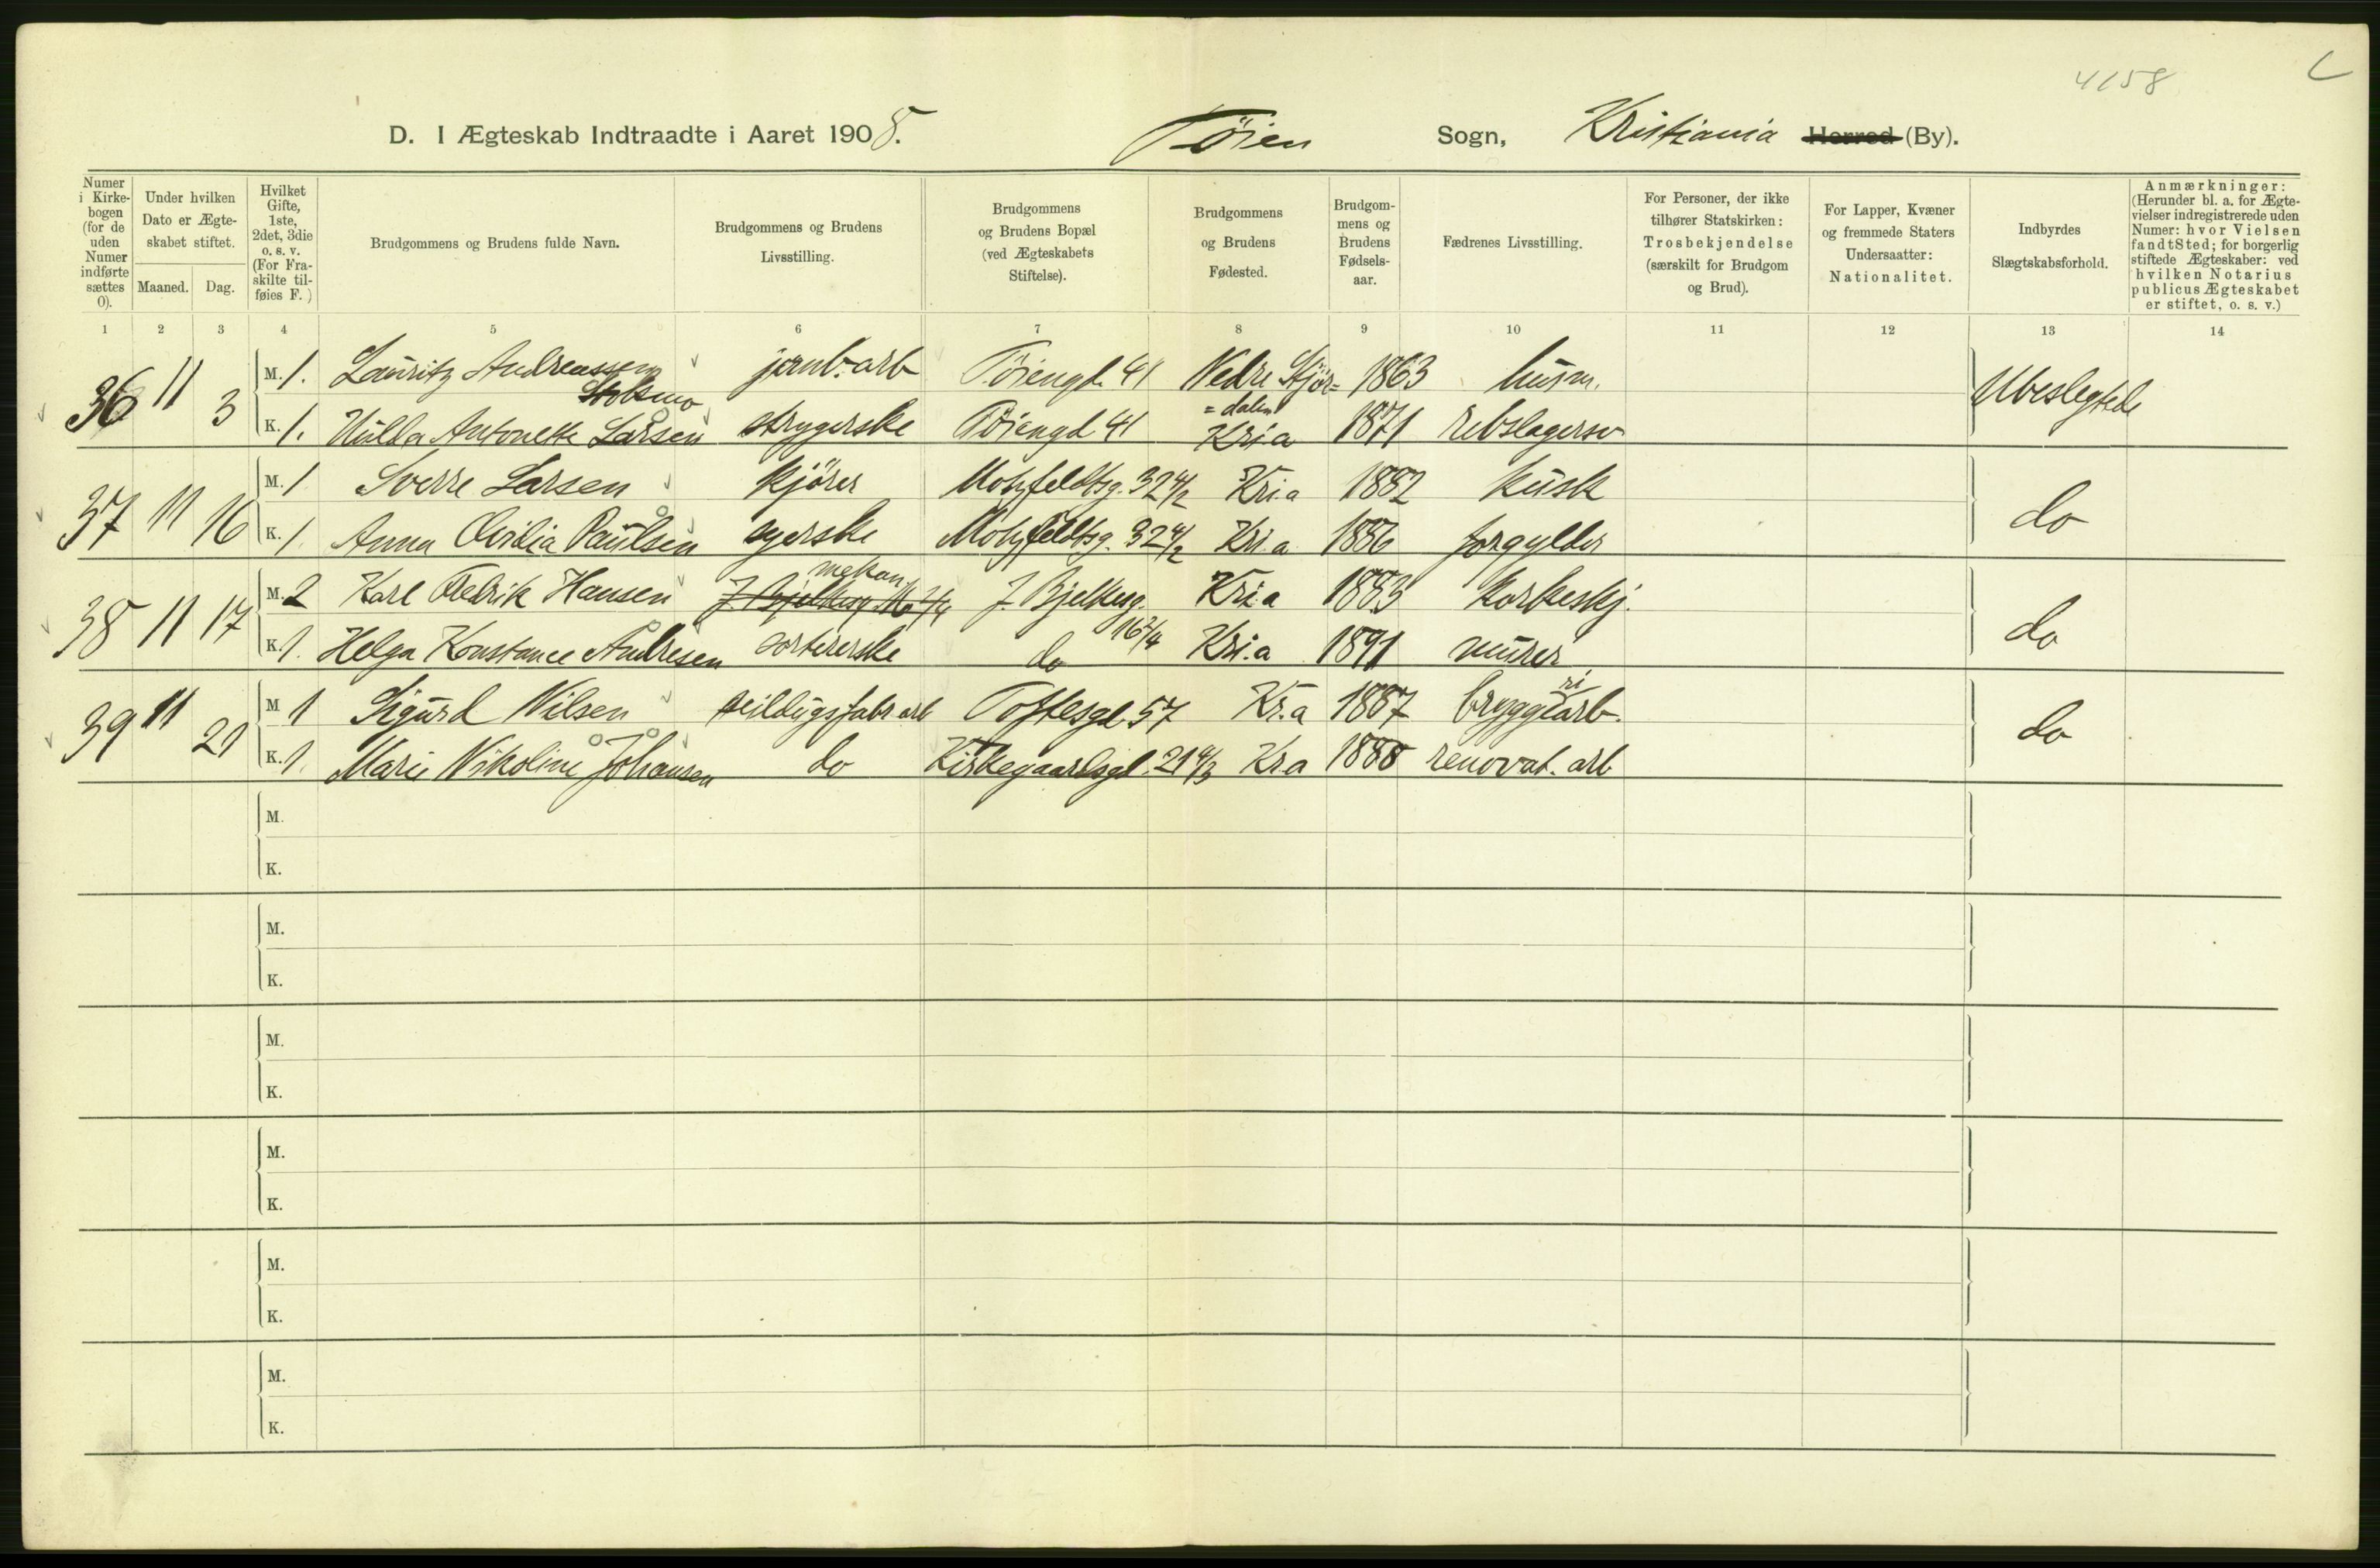 4158
D. I Ægteskab Indtraadte i Aaret 1908. Töien Sogn, Kristiania Herred (By).
Numer i Kirkebogen (for de uden Numer indførte sættes 0).
Under hvilken Dato er Ægteskabet stiftet.
Maaned. Dag.
Hvilket Gifte, 1ste, 2det, 3die o. s. v. (For Fraskilte tilføies F.)
Brudgommens og Brudens fulde Navn.
Brudgommens og Brudens Livsstilling.
Brudgommens og Brudens Bopæl (ved Ægteskabets Stiftelse).
Brudgommens og Brudens Fødested.
Brudgommens og Brudens Fødselsaar.
Fædrenes Livsstilling.
For Personer, der ikke tilhører Statskirken: Trosbekjendelse (særskilt for Brudgom og Brud).
For Lapper, Kvæner og fremmede Staters Undersaatter: Nationalitet.
Indbyrdes Slægtskabsforhold.
Anmærkninger: (Herunder bl. a. for Ægtevielser indregistrerede uden Numer: hvor Vielsen fandt Sted; for borgerlig stiftede Ægteskaber: ved hvilken Notarius publicus Ægteskabet er stiftet, o. s. v.)
1 2 3 4 5 6 7 8 9 10 11 12 13 14
36 11 3 M. 1. Lauritz Andreassen Stolsmo jernb. arb Töiengd. 41 Nedre Stjör=dalen 1863 husm. Ubeslegtede
K. 1. Hulda Antonette Larsen strygerske Töiengd 41 Kria 1871 rebslagersv
37 11 16 M. 1 Sverre Larsen kjörer Motzfeldtsg. 32 4/2 Kria 1882 kusk do
K. 1 Anna Ovidia Paulsen syerske Motzfeldtsg. 32 4/2 Kria 1886 forgylder
38 11 17 M. 2 Karl Fredrik Hansen J. Bjelkesg. 16 2/4 mekan. J. Bjelkesg. 16 2/4 Kria 1883 korkeskj. do
K. 1. Helga Konstance Andresen sortererske do Kria 1891 murer
39 11 21 M 1 Sigurd Nilsen seildugsfabr arb Toftesgd. 57 Kr.a 1887 bryggeriarb. do
K. 1. Marie Nikoline Johansen do Kirkegaardsgd. 21 4/3 Kra 1888 renovat. arb
M.
K.
M.
K.
M.
K.
M.
K.
M.
K.
M.
K.